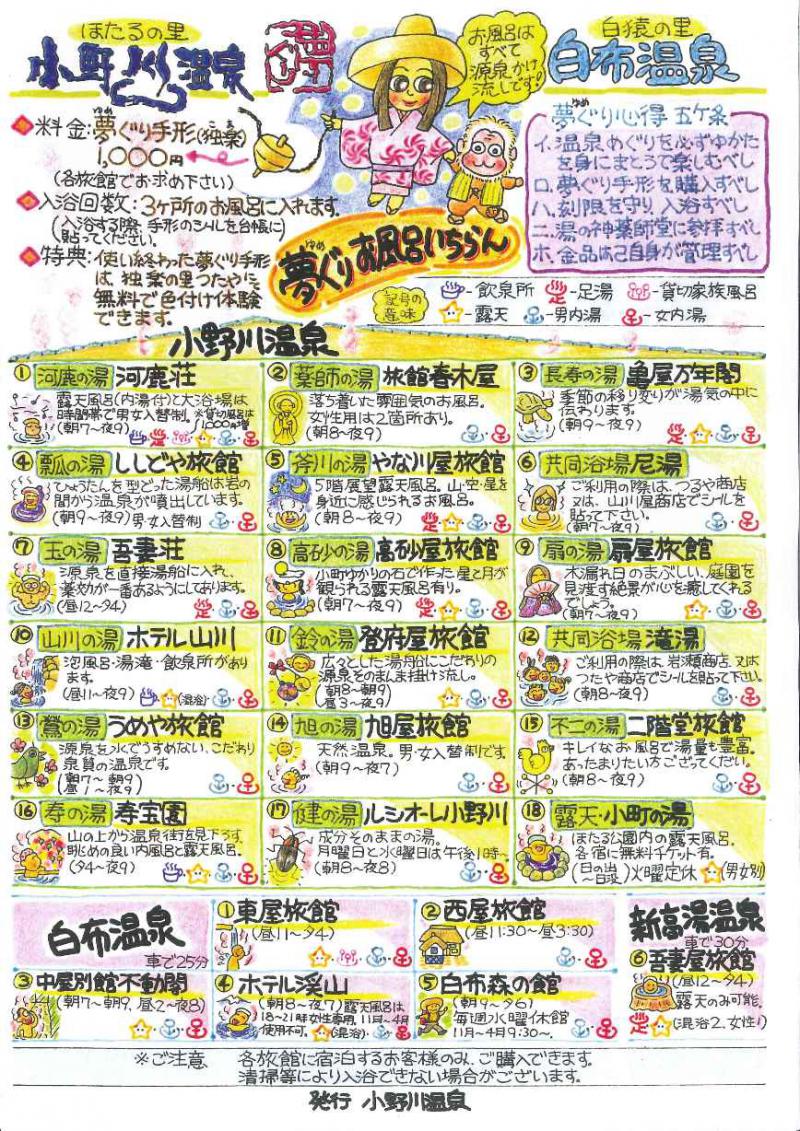 ほたるの里
小野川温泉
白猿の里
白布温泉
お風呂は
すべて
源泉かけ
流しです!
料金:夢ぐり手形(独楽)
ゆめ
こま
1,000円
(各旅館でお求め下さい)
入浴回数:3ヶ所のお風呂に入れます。
(入浴する際、手形のシールを台帳に)
貼ってください。
特典:使い終わった夢ぐり手形
は、独楽の里つたやにて
無料で色付け体験
できます。
夢ぐり心得 五ケ条
ゆめ
イ.温泉めぐりを必ずゆかた
を身にまとうて楽しむべし
ロ.夢ぐり手形を購入すべし
ハ.刻限を守り、入浴すべし
ニ.湯の神薬師堂に参拝すべし
ホ.金品は己自身が管理すべし
ゆめ
夢ぐりお風呂いちらん
記号の
意味
-飲泉所 -足湯 -貸切家族風呂
-露天 -男内湯 -女内湯
小野川温泉
① 河鹿の湯 河鹿荘
露天風呂(内湯付)と大浴場は
時間帯で男女入替制。※貸切風呂は
1,000円増
(朝7〜夜9)
② 薬師の湯 旅館春木屋
落ち着いた雰囲気のお風呂。
女性用は2箇所あり。
(朝8〜夜9)
③ 長寿の湯 亀屋万年閣
季節の移り変りが湯気の中に
伝わります。
(朝9〜夜9)
④ 瓢の湯 ししどや旅館
ひょうたんを型どった湯船は岩の
間から温泉が噴出しています。
(朝9〜夜9)男女入替制
⑤ 斧川の湯 やな川屋旅館
5階展望露天風呂。山・空・星を
身近に感じられるお風呂。
(朝8〜夜9)
⑥ 共同浴場 尼湯
ご利用の際は、つるや商店
又は、山川屋商店でシールを
貼って下さい。
(朝7〜夜9)
⑦ 玉の湯 吾妻荘
源泉を直接湯船に入れ、
薬効が一番あるようにしてあります。
(昼12〜夕4)
⑧ 高砂の湯 高砂屋旅館
小町ゆかりの石で作った星と月が
観られる露天風呂有り。
(朝7〜夜9)
⑨ 扇の湯 扇屋旅館
木漏れ日のまぶしい、庭園を
見渡す絶景が心を癒してくれる
でしょう。
(朝7〜夜9)
⑩ 山川の湯 ホテル山川
泡風呂・湯滝・飲泉所があり
ます。
(昼11〜夜9) (混浴)
⑪ 鈴の湯 登府屋旅館
広々とした湯船にこだわりの
源泉そのまんま掛け流し。
(朝8〜朝9)
(昼3〜夜9)
⑫ 共同浴場 滝湯
ご利用の際は、岩瀬商店、又は
つたや商店でシールを貼って下さい。
(朝8〜夜9)
⑬ 鶯の湯 うめや旅館
源泉を水でうすめない、こだわり
泉質の温泉です。
(朝7〜朝9)
(昼1〜夜9)
⑭ 旭の湯 旭屋旅館
天然温泉。男・女入替制です。
(朝9〜夜7)
⑮ 不二の湯 二階堂旅館
キレイなお風呂で湯量も豊富。
あったまりたい方ござってくだい。
(朝8〜夜9)
⑯ 寿の湯 寿宝園
山の上から温泉街を見下ろす。
眺めの良い内風呂と露天風呂。
(夕4〜夜9)
⑰ 健の湯 ルシオーレ小野川
成分そのままの湯。
月曜日と水曜日は午後1時〜
(朝8〜夜8)
⑱ 露天・小町の湯
ほたる公園内の露天風呂。
各宿に無料チケット有。
(日の出〜日没)火曜定休 (男女別)
白布温泉
車で25分
① 東屋旅館
(昼11〜夕4)
② 西屋旅館
(昼11:30〜昼3:30)
新高湯温泉
車で30分
⑥ 吾妻屋旅館
(昼12〜夕4)
露天のみ可能。
(混浴2、女性1)
③ 中屋別館不動閣
(朝7〜朝9、昼2〜夜8)
④ ホテル渓山
(朝8〜夜7)露天風呂は
18〜21時女性専用。11月〜4月
使用不可。 (混浴)
⑤ 白布森の館
(朝9〜夕6)
毎週水曜休館
11月〜4月9:30〜。
※ご注意 各旅館に宿泊するお客様のみ、ご購入できます。
清掃等により入浴できない場合がございます。
発行 小野川温泉